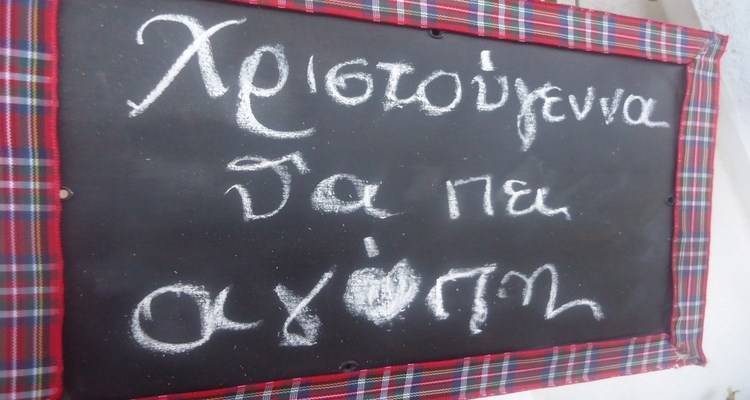 Χριστούγεννα
θα πει
αγάπη